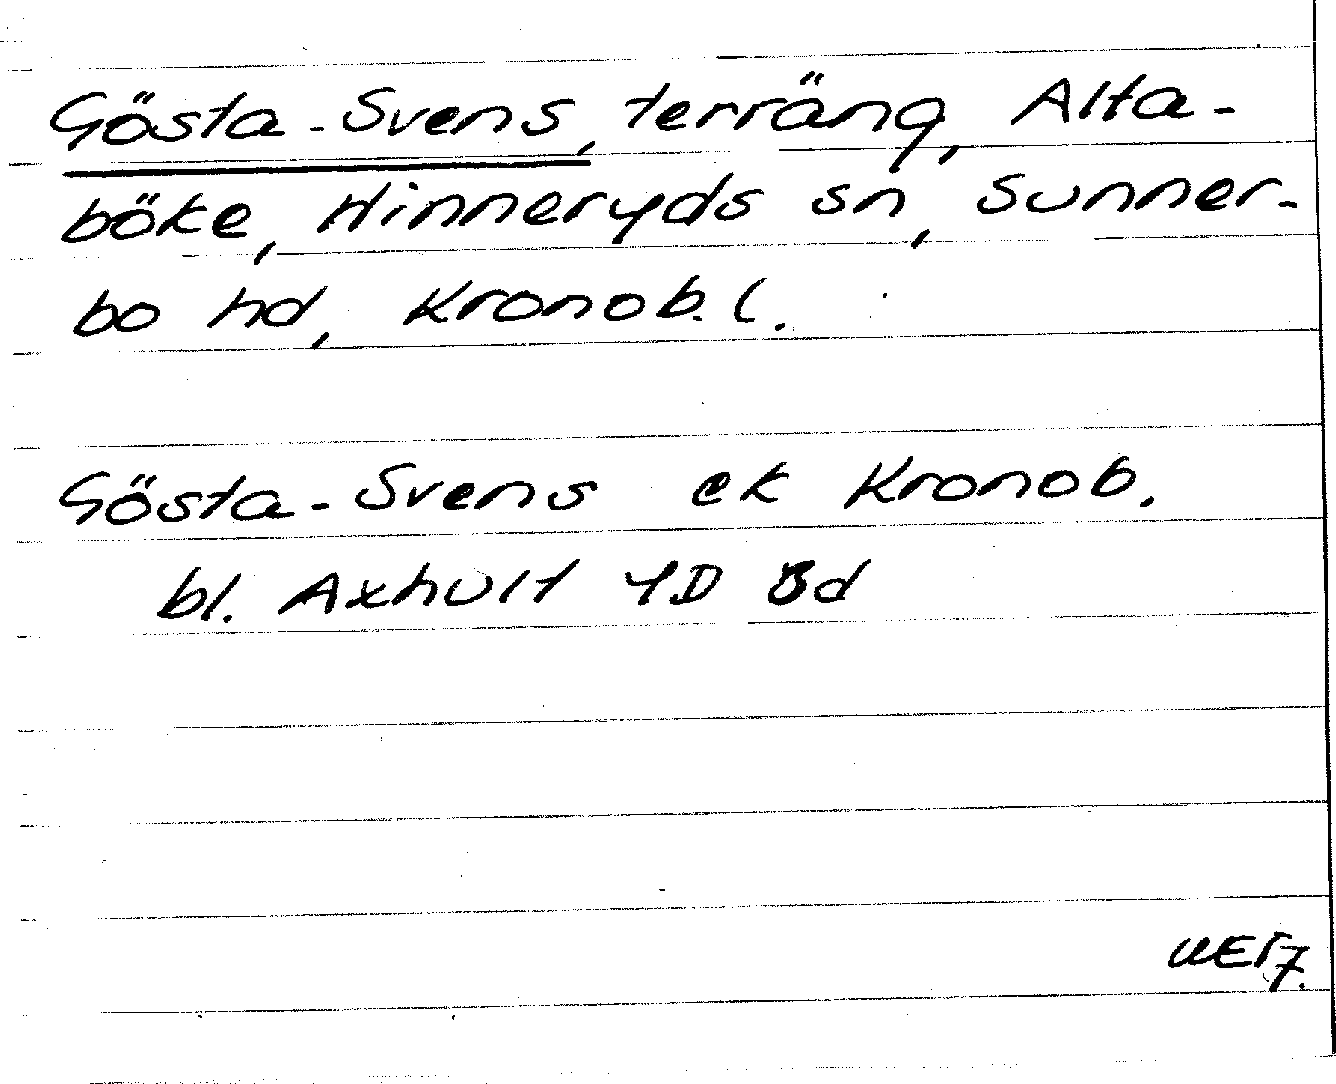 Gösta-Svens, terräng, Alta-
böke, Hinneryds sn, Sunner-
bo hd, Kronob. l.
Gösta-Svens ek Kronob.
bl. Axhult 4D 8d